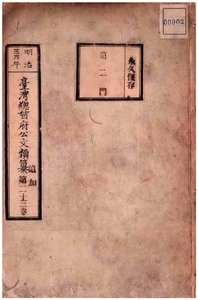 00902
永久保存
第二門
明治
三六年
臺灣總督府公文類纂
追加
第二十二卷